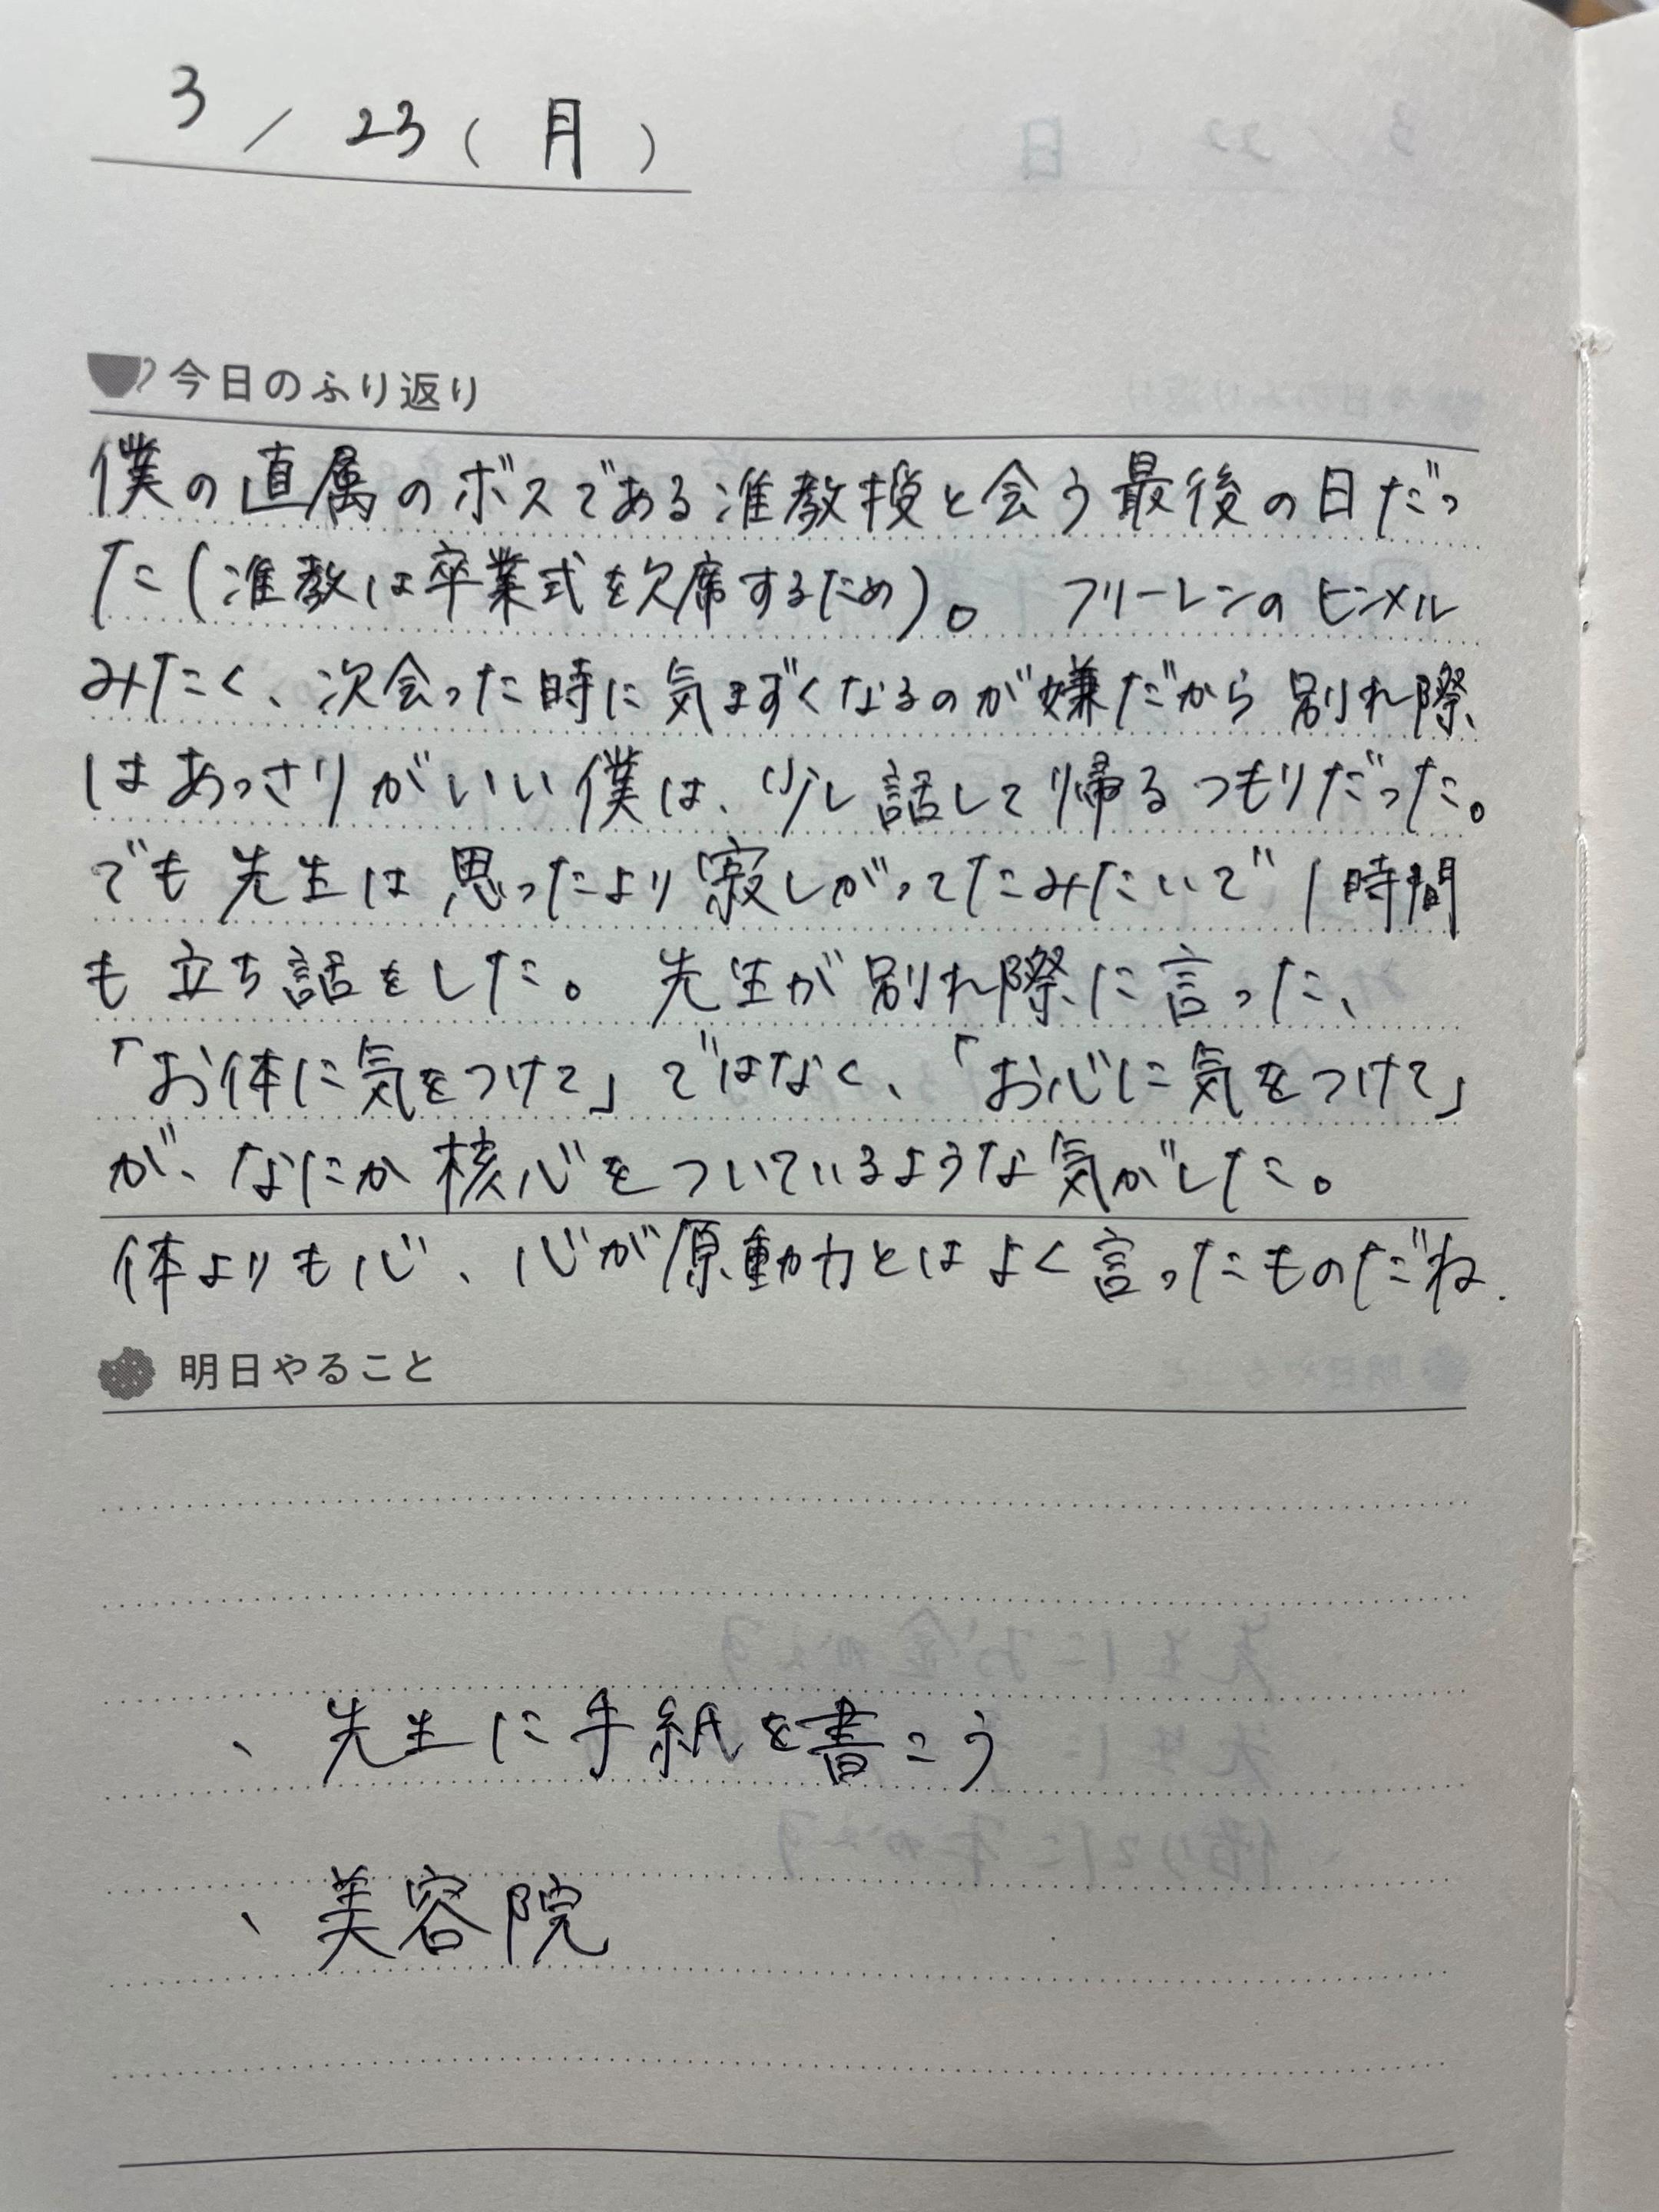 3/23(月)
今日のふり返り
僕の直属のボスである准教授と会う最後の日だっ
た(准教は卒業式を欠席するため)。フリーレンのヒンメル
みたく、次会った時に気まずくなるのが嫌だから別れ際
はあっさりがいい僕は、少し話して帰るつもりだった。
でも先生は思ったより寂しがってたみたいで1時間
も立ち話をした。先生が別れ際に言った、
「お体に気をつけて」ではなく、「お心に気をつけて」
が、なにか核心をついているような気がした。
体よりも心、心が原動力とはよく言ったものだね.
明日やること
、先生に手紙を書こう
、美容院